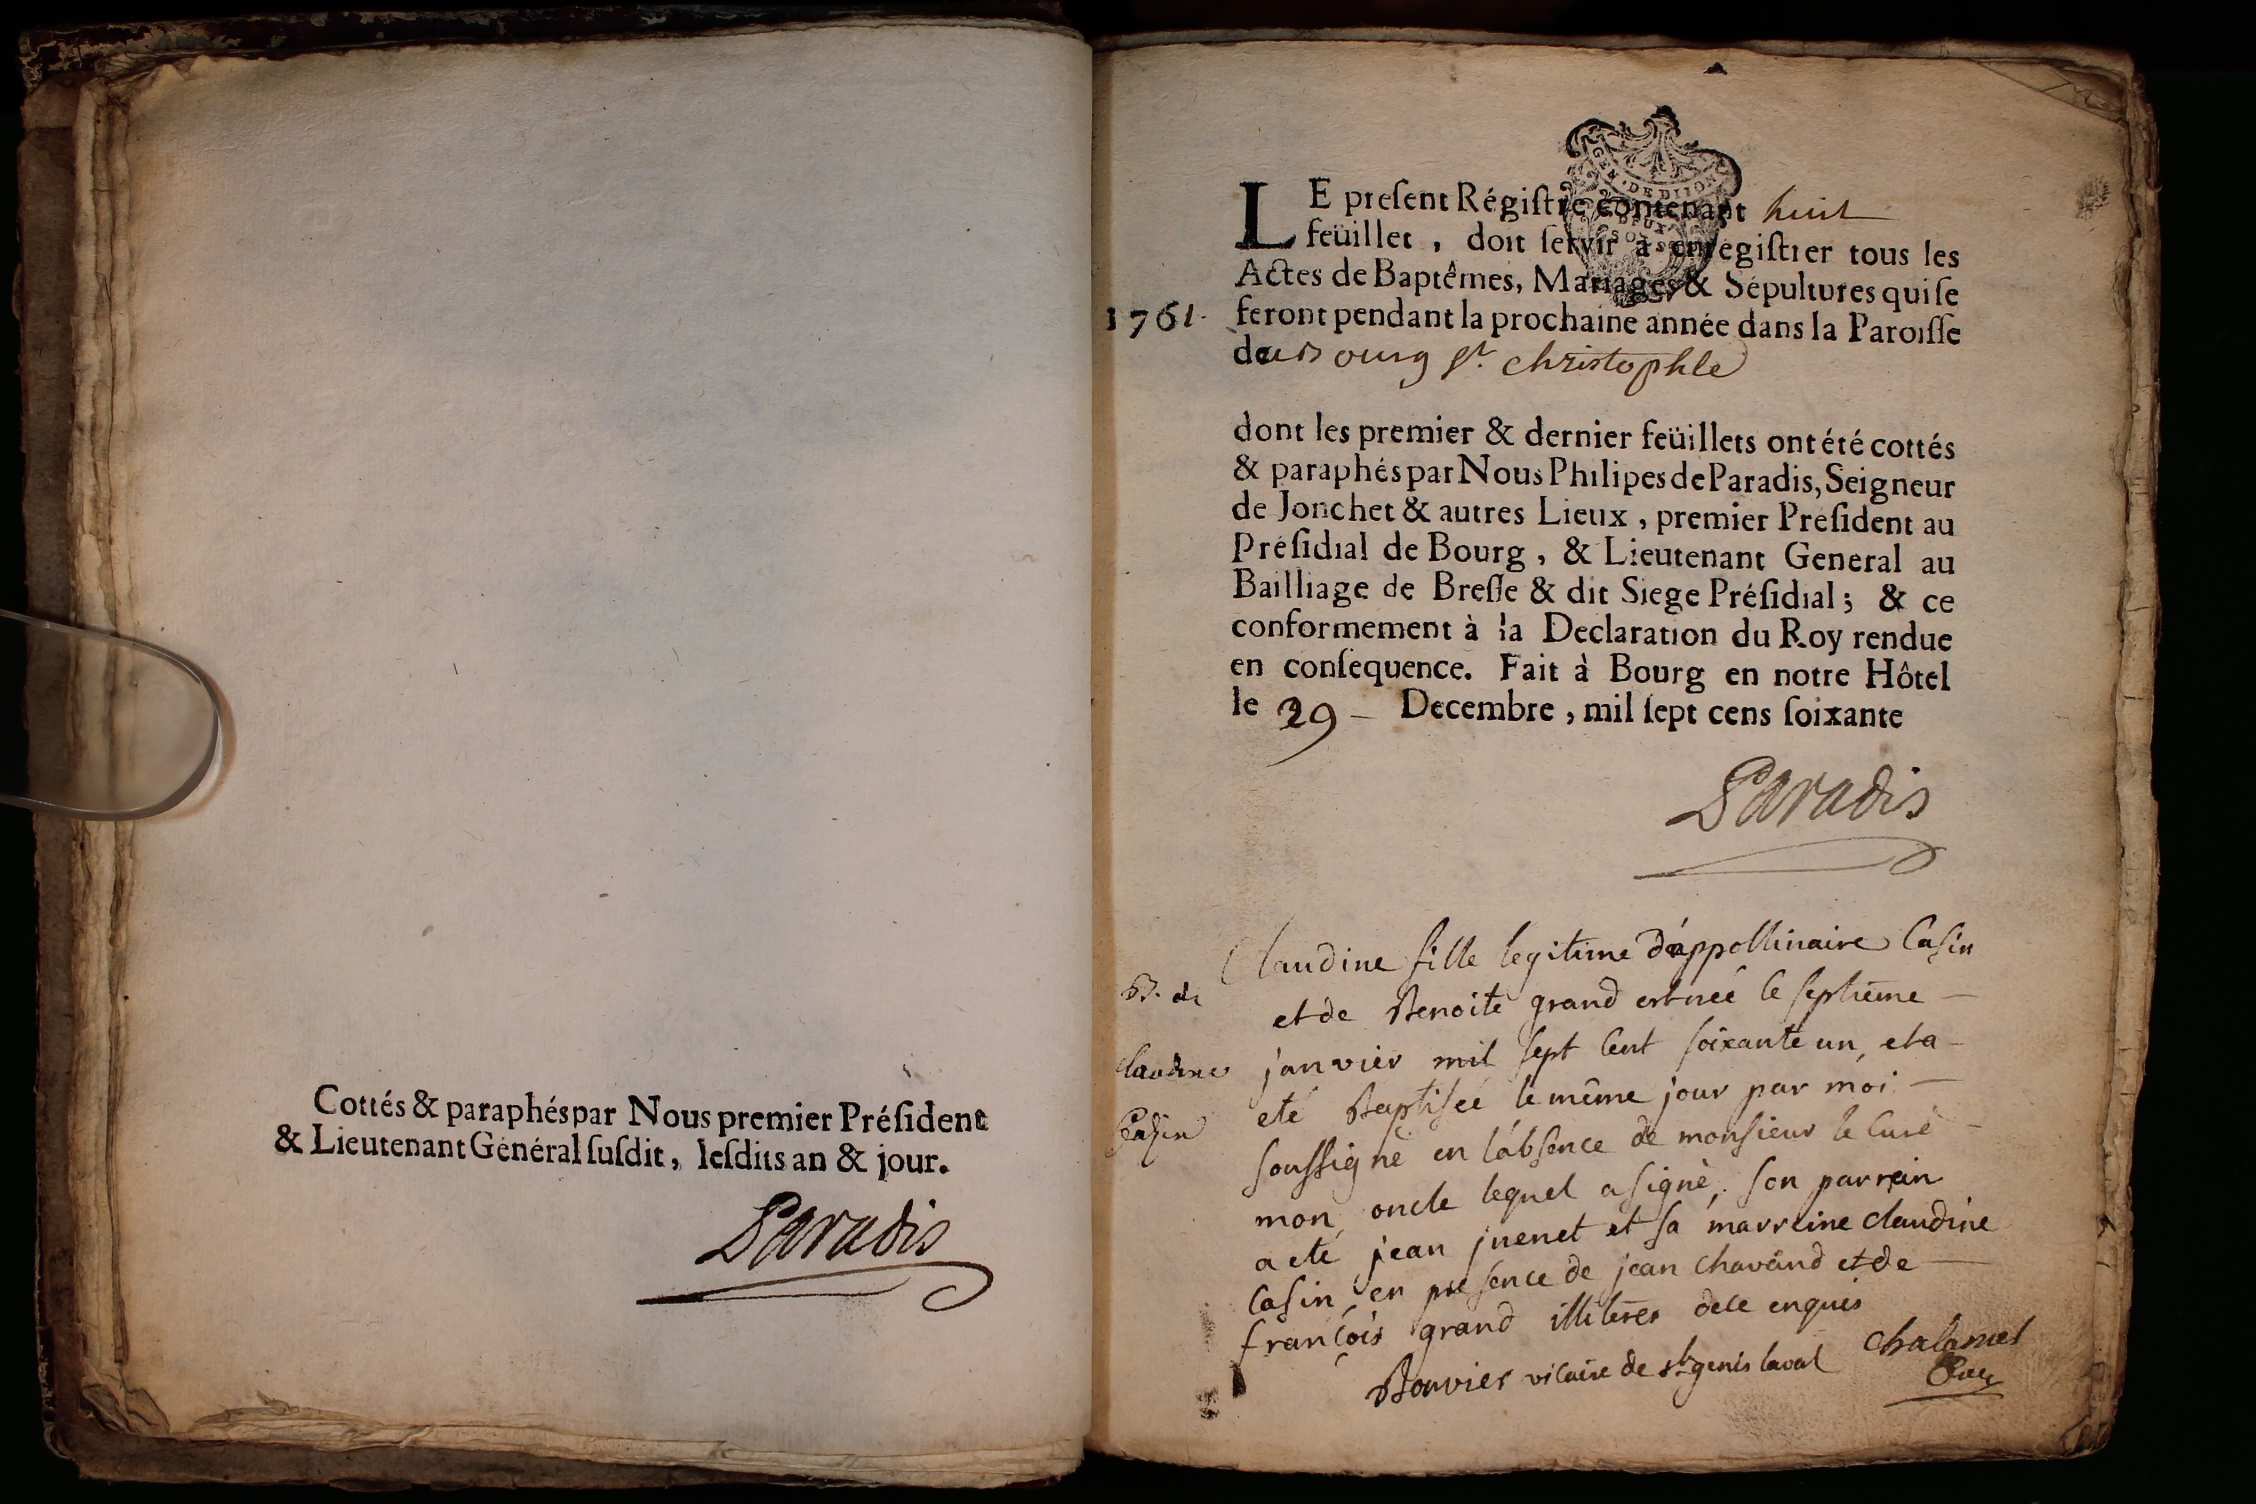 Cottés & paraphés par Nous premier Préſident
& Lieutenant Général ſuſdit, leſdits an & jour.
Paradis
GEN. DE DIJON
DEUX
SOLS
LE preſent Régiſtre contenant huit
feüillet, doit ſervir à enregiſtrer tous les
Actes de Baptêmes, Mariages & Sépultures qui ſe
1761. feront pendant la prochaine année dans la Paroiſſe
de Bourg St. Christophle
dont les premier & dernier feüillets ont été cottés
& paraphés par Nous Philipes de Paradis, Seigneur
de Jonchet & autres Lieux, premier Préſident au
Préſidial de Bourg, & Lieutenant General au
Bailliage de Breſſe & dit Siege Préſidial; & ce
conformement à la Declaration du Roy rendue
en conſequence. Fait à Bourg en notre Hôtel
le 29 Decembre, mil ſept cens ſoixante
Paradis
B. de
Claudine
Casin
Claudine fille legitime d'appollinaire Casin
et de Benoite grand est née le septième
janvier mil sept cent soixante un, et a
eté Baptisée le même jour par moi
soussigné en l'absence de monsieur le Curé
mon oncle lequel a signé, son parrein
a eté jean juenet et sa marreine claudine
Casin en presence de jean chavand et de
françois grand illiteres de ce enquis
Bouvier vicaire de st genis laval Chalamel